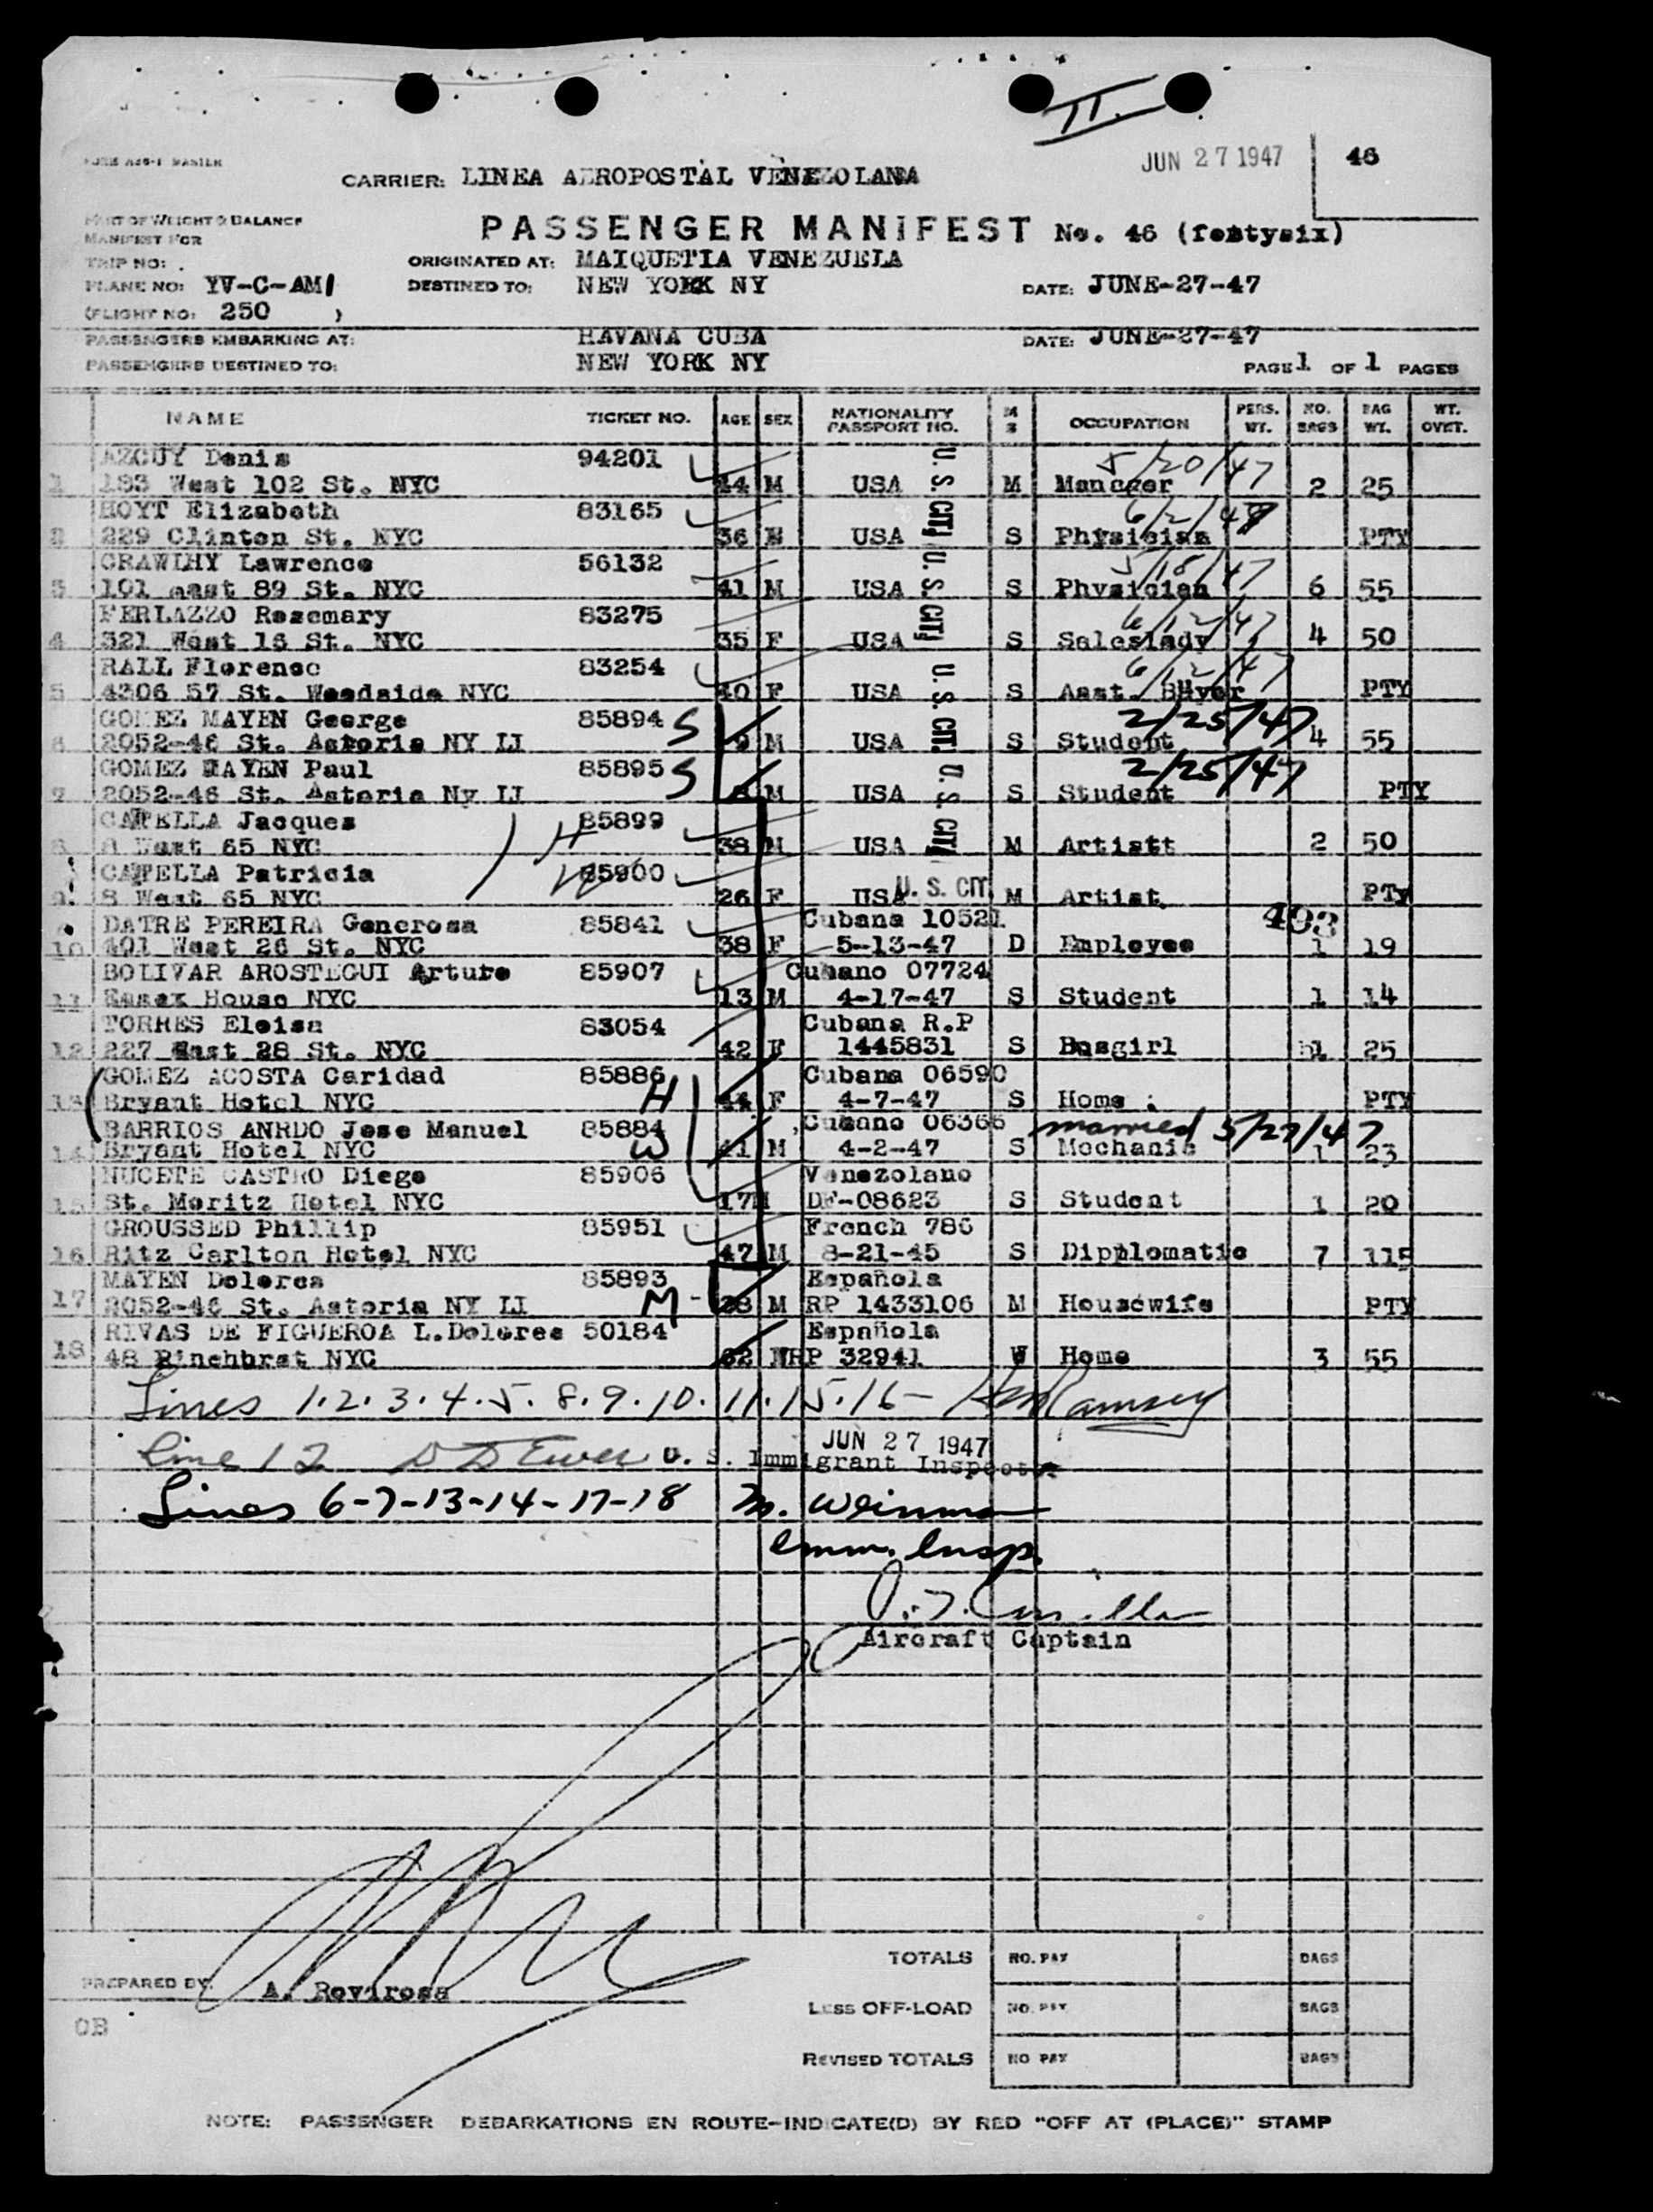 II.
JUN 27 1947
46
CARRIER: LINEA AEROPOSTAL VENEZOLANA
PART OF WEIGHT & BALANCE
MANIFEST FOR
PASSENGER MANIFEST No. 46 (fortysix)
TRIP NO:
ORIGINATED AT: MAIQUETIA VENEZUELA
PLANE NO: YV-C-AM
DESTINED TO: NEW YORK NY
DATE: JUNE-27-47
(FLIGHT NO: 250 )
PASSENGERS EMBARKING AT: HAVANA CUBA
DATE: JUNE-27-47
PASSENGERS DESTINED TO: NEW YORK NY
PAGE 1 OF 1 PAGES
NAME TICKET NO. AGE SEX NATIONALITY PASSPORT NO. M S OCCUPATION PERS. WT. NO. BAGS BAG WT. WT. OVET.
AZCUY Denis 94201 5/20/47
1 183 West 102 St. NYC 44 M USA U. S. CIT. M Manager 2 25
HOYT Elizabeth 83165 6/2/47
2 229 Clinton St. NYC 36 USA S Physician PTY
CRAWIHY Lawrence 56132 5/18/47
3 101 east 89 St. NYC 41 M USA U. S. CIT. S Physician 6 55
FERLAZZO Rosemary 83275 6/12/47
4 321 West 16 St. NYC 35 F USA S Saleslady 4 50
RALL Florence 83254 6/12/47
5 4306 57 St. Woodside NYC 40 F USA U. S. CIT. S Asst. Buyer PTY
GOMEZ MAYEN George 85894 S 2/25/47
6 2052-46 St. Astoria NY LI 9 M USA S Student 4 55
GOMEZ MAYEN Paul 85895 S 2/25/47
7 2052-46 St. Astoria Ny LI M USA U. S. CIT. S Student PTY
CATELLA Jacques 85899 H
8 8 West 65 NYC 38 M USA M Artistt 2 50
CATELLA Patricia 85900 W
9 8 West 65 NYC 26 F USA U. S. CIT. M Artist PTY
DATRE PEREIRA Generosa 85841 Cubana 10521 493
10 401 West 26 St. NYC 38 F 5-13-47 D Employee 1 19
BOLIVAR AROSTEGUI Arturo 85907 Cubano 07724
11 Essex House NYC 13 M 4-17-47 S Student 1 14
TORRES Eloisa 83054 Cubana R.P
12 227 East 28 St. NYC 42 F 1445831 S Busgirl 1 25
GOMEZ ACOSTA Caridad 85886 H Cubana 06590
13 Bryant Hotel NYC 44 F 4-7-47 S Home PTY
BARRIOS ANRDO Jose Manuel 85884 W Cubano 06366 married 5/27/47
14 Bryant Hotel NYC 41 M 4-2-47 S Mechanic 1 23
NUCETE CASTRO Diego 85906 Venezolano
15 St. Moritz Hotel NYC 17 M DF-08623 S Student 1 20
GROUSSED Phillip 85951 French 786
16 Ritz Carlton Hotel NYC 47 M 8-21-45 S Dipplomatic 7 115
MAYEN Dolores 85893 M Española
17 2052-46 St. Astoria NY LI 28 M RP 1433106 M Housewife PTY
RIVAS DE FIGUEROA L.Dolores 50184 Española
18 48 Pinehhrst NYC 62 RP 32941 W Home 3 55
Lines 1.2.3.4.5.8.9.10.11.15.16- Ramsey
JUN 27 1947
Line 12 D D Ewer U. S. Immigrant Inspector
Lines 6-7-13-14-17-18 M. Weinman
Imm. Insp.
Aircraft Captain
PREPARED BY: A. Rovirosa
OB
TOTALS NO. PAY BAGS
LESS OFF-LOAD NO. PAY BAGS
REVISED TOTALS NO PAY BAGS
NOTE: PASSSENGER DEBARKATIONS EN ROUTE-INDICATE(D) BY RED "OFF AT (PLACE)" STAMP